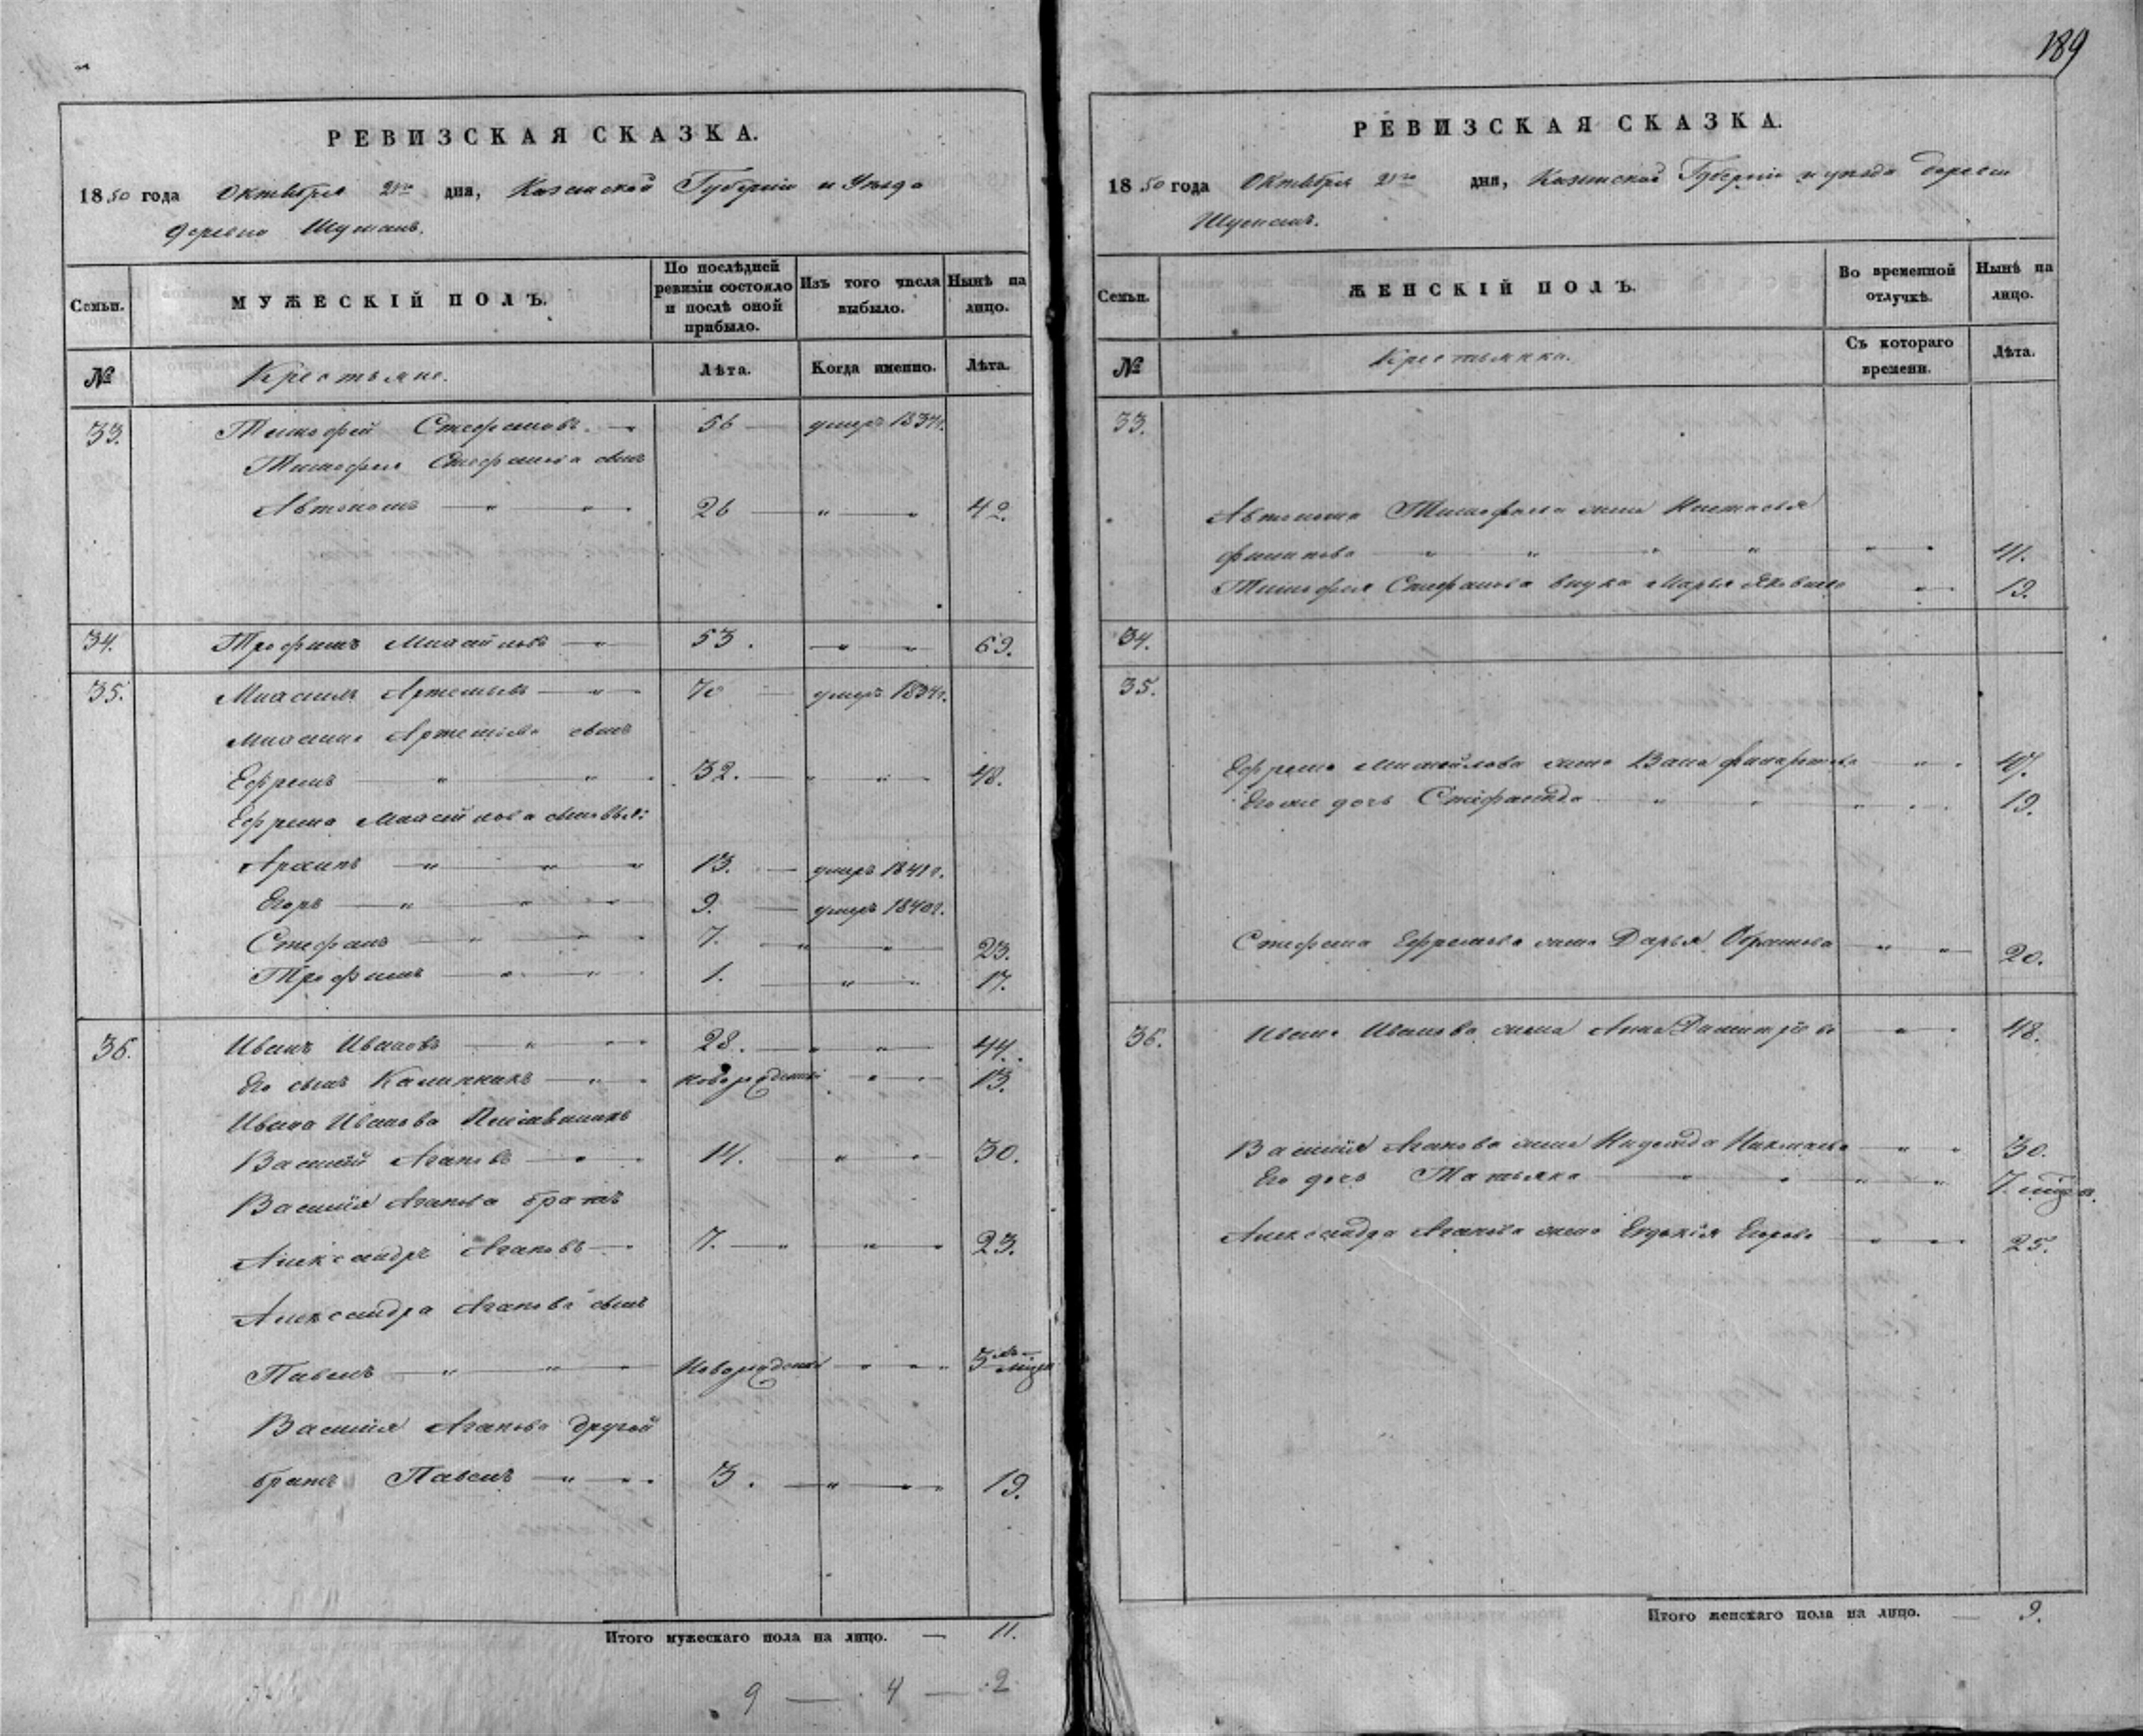 189
РЕВИЗСКАЯ СКАЗКА.
1850 года Октября 2го дня, Казанской Губерніи и Уѣзда
деревни Шуманъ.
Семьи. МУЖЕСКІЙ ПОЛЪ. По послѣдней ревизіи состояло и послѣ оной прибыло. Изъ того числа выбыло. Нынѣ на лицо.
№ Крестьяне. Лѣта. Когда именно. Лѣта.
33. Тимофей Стефановъ 56 умеръ 1834г.
Тимофея Стефанова сынъ
Автономъ 26 42.
34. Трофимъ Михайловъ 53. 69.
35. Михаилъ Артемьевъ 70 умеръ 1834г.
Михаила Артемьева сынъ
Ефремъ 32. 48.
Ефрема Михайлова сыновья:
Архипъ 13. умеръ 1841г.
Егоръ 9. умеръ 1840г.
Стефанъ 7. 23.
Трофимъ 1. 17.
36. Иванъ Ивановъ 28. 44.
Его сынъ Калинникъ новорожденный 13.
Ивана Иванова
Василій Агаповъ 14. 30.
Василія Агапова братъ
Александръ Агаповъ 7. 23.
Александра Агапова сынъ
Павелъ Новорожденный 3
Василія Агапова другой
братъ Павелъ 3. 19.
Итого мужескаго пола на лицо. 11.
9 — 4 — 2
РЕВИЗСКАЯ СКАЗКА.
1850 года Октября 2го дня, Казанской Губерніи и уѣзда деревни
Шуманъ.
Семьи. ЖЕНСКІЙ ПОЛЪ. Во временной отлучкѣ. Нынѣ на лицо.
№ Крестьянки. Съ котораго времени. Лѣта.
33.
Автонома Тимофеева жена Настасья
Филипова 41.
Тимофея Стефанова внука Марья Яковлева 19.
34.
35.
Ефрема Михайлова жена 47.
Его же дочь Стефанида 19.
Стефана Ефремова жена Дарья 20.
36. Ивана Иванова жена Анна Дмитріева 48.
Василія Агапова жена Надежда 30.
Его дочь Татьяна 7
Александра Агапова жена Евдокія Егорова 25.
Итого женскаго пола на лицо. — 9.